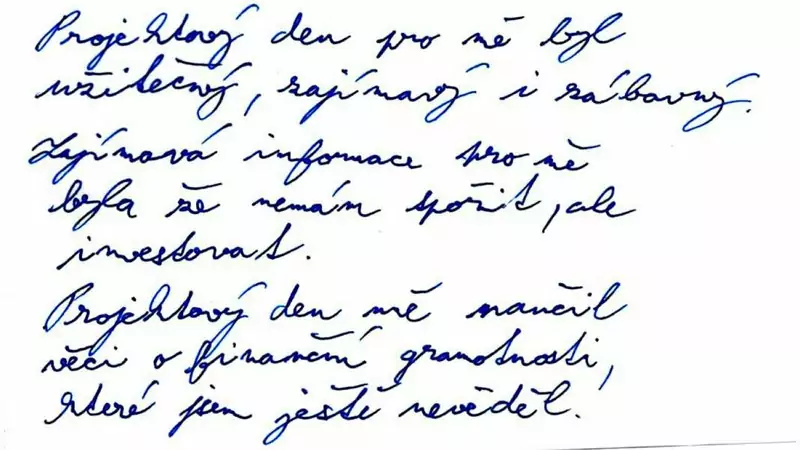 Projektový den pro mě byl
užitečný, zajímavý i zábavný.
Zajímavá informace pro mě
byla že nemám spořit, ale
investovat.
Projektový den mě naučil
věci o finanční gramotnosti,
které jsem ještě nevěděl.